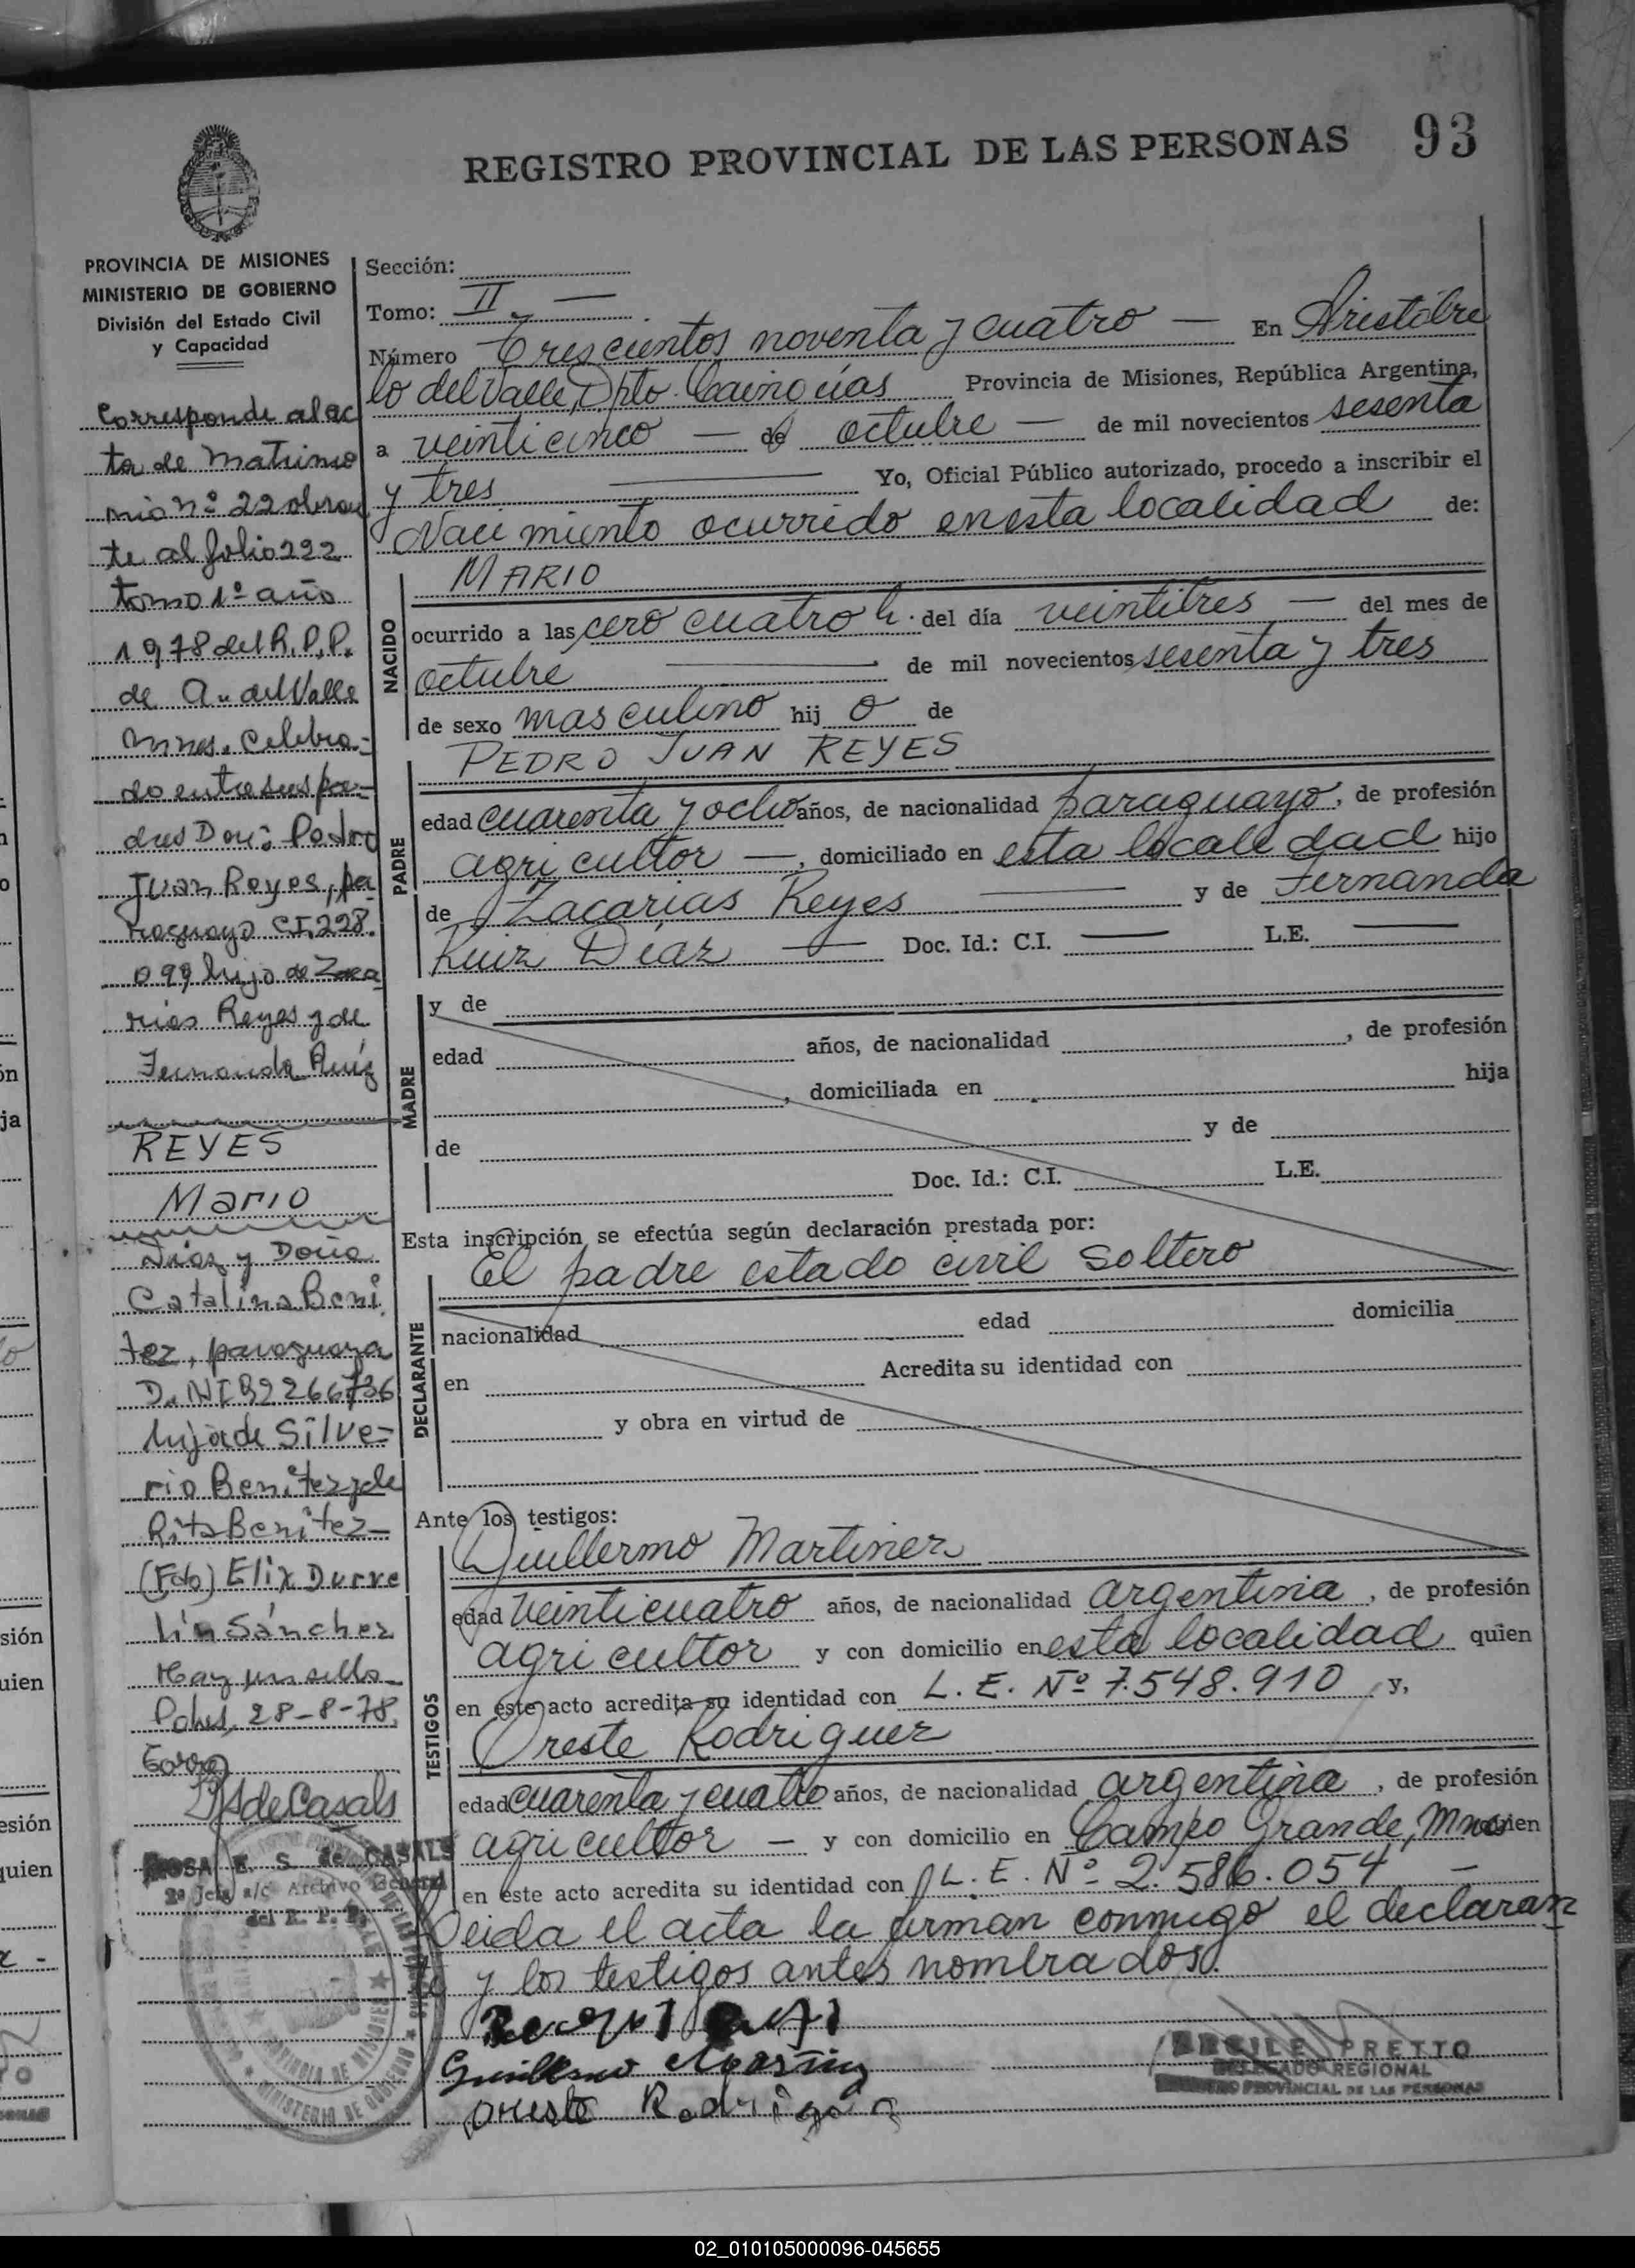 REGISTRO PROVINCIAL DE LAS PERSONAS 93
PROVINCIA DE MISIONES
MINISTERIO DE GOBIERNO
División del Estado Civil
y Capacidad
Corresponde al ac
ta de Matrimo
nio nº 22 obran
te al folio 222
tomo 1º año
1978 del R.P.P.
de A. del Valle
Mnes. Celebra-
do entre sus pa-
dres Don: Pedro
Juan Reyes, pa
raguayo C.I. 228.
099 hijo de Zaca
rias Reyes y de
Fernanda Ruíz
REYES
Mario
Díaz y Doña
Catalina Beni
tez, paraguaya
D.NI 92266736
hija de Silve-
rio Benitez y de
Rita Benitez-
(Fdo) Elix Durve
lin Sánchez
Hay un sello-
Pdas, 28-8-78.
ROSA E. S. de CASALS
2º Jefe a/c Archivo General
del R. P. P.
PROVINCIA DE MISIONES
MINISTERIO DE GOBIERNO
Sección:
Tomo: II —
Número Trescientos noventa y cuatro — En Aristóbu
lo del Valle, Dpto. Cainguás Provincia de Misiones, República Argentina,
a veinticinco — de octubre — de mil novecientos sesenta
y tres — Yo, Oficial Público autorizado, procedo a inscribir el
Nacimiento ocurrido en esta localidad de:
NACIDO
MARIO
ocurrido a las cero cuatro h. del día veintitres — del mes de
octubre — de mil novecientos sesenta y tres
de sexo masculino hij o de
PADRE
PEDRO JUAN REYES
edad cuarenta y ocho años, de nacionalidad paraguayo, de profesión
agricultor —, domiciliado en esta localidad hijo
de Zacarias Reyes — y de Fernanda
Ruiz Díaz — Doc. Id.: C.I. — L.E. —
MADRE
y de
edad años, de nacionalidad , de profesión
, domiciliada en hija
de y de
Doc. Id.: C.I. L.E.
Esta inscripción se efectúa según declaración prestada por:
El padre estado civil soltero
DECLARANTE
nacionalidad edad domicilia
en Acredita su identidad con
y obra en virtud de
Ante los testigos:
TESTIGOS
Guillermo Martinez
edad veinticuatro años, de nacionalidad argentina, de profesión
agricultor y con domicilio en esta localidad quien
en este acto acredita su identidad con L.E. Nº 7.548.910 y,
Oreste Rodriguez
edad cuarenta y cuatro años, de nacionalidad argentina, de profesión
agricultor — y con domicilio en Campo Grande, Mnes quien
en este acto acredita su identidad con L.E. Nº 2.586.054 —
Leida el acta la firman conmigo el declaran
te y los testigos antes nombrados.
Guillermo Martinez
Oreste Rodriguez
PRETTO
DELEGADO REGIONAL
REGISTRO PROVINCIAL DE LAS PERSONAS
02_010105000096-045655